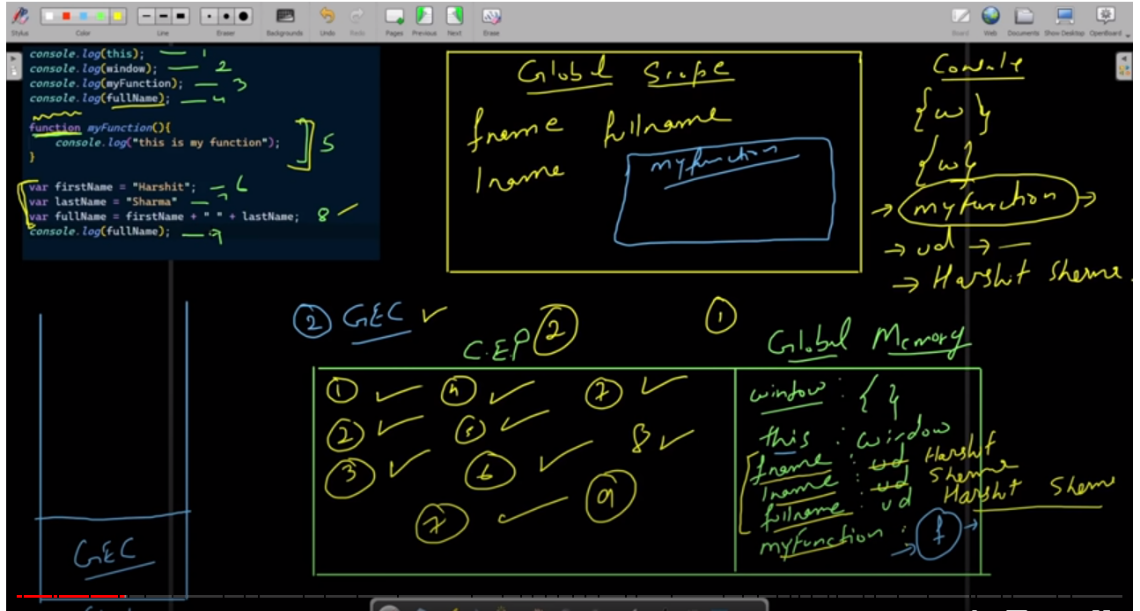 Stylus
Color
Line
Eraser
Backgrounds
Undo
Redo
Pages
Previous
Next
Erase
Board
Web
Documents
Show Desktop
OpenBoard
console.log(this); — 1
console.log(window); — 2
console.log(myFunction); — 3
console.log(fullName); — 4
function myFunction(){
console.log("this is my function");
}
5
var firstName = "Harshit"; — 6
var lastName = "Sharma" — 7
var fullName = firstName + " " + lastName; 8
console.log(fullName); — 9
Global Scope
fname fullname
lname
myfunction
Console
{w}
{w}
→ myfunction →
→ ud → —
→ Harshit Sharma.
② GEC ✓
C.E.P ②
①
Global Memory
① ✓ ④ ✓ ⑦ ✓
② ✓ ⑤ ✓
③ ✓ ⑥ ✓ 8 ✓
⑦ ✓ ⑨
window : { }
this : window
fname : ud Harshit
lname : ud Sharma
fullname : ud Harshit Sharma
myfunction : → f →
GEC